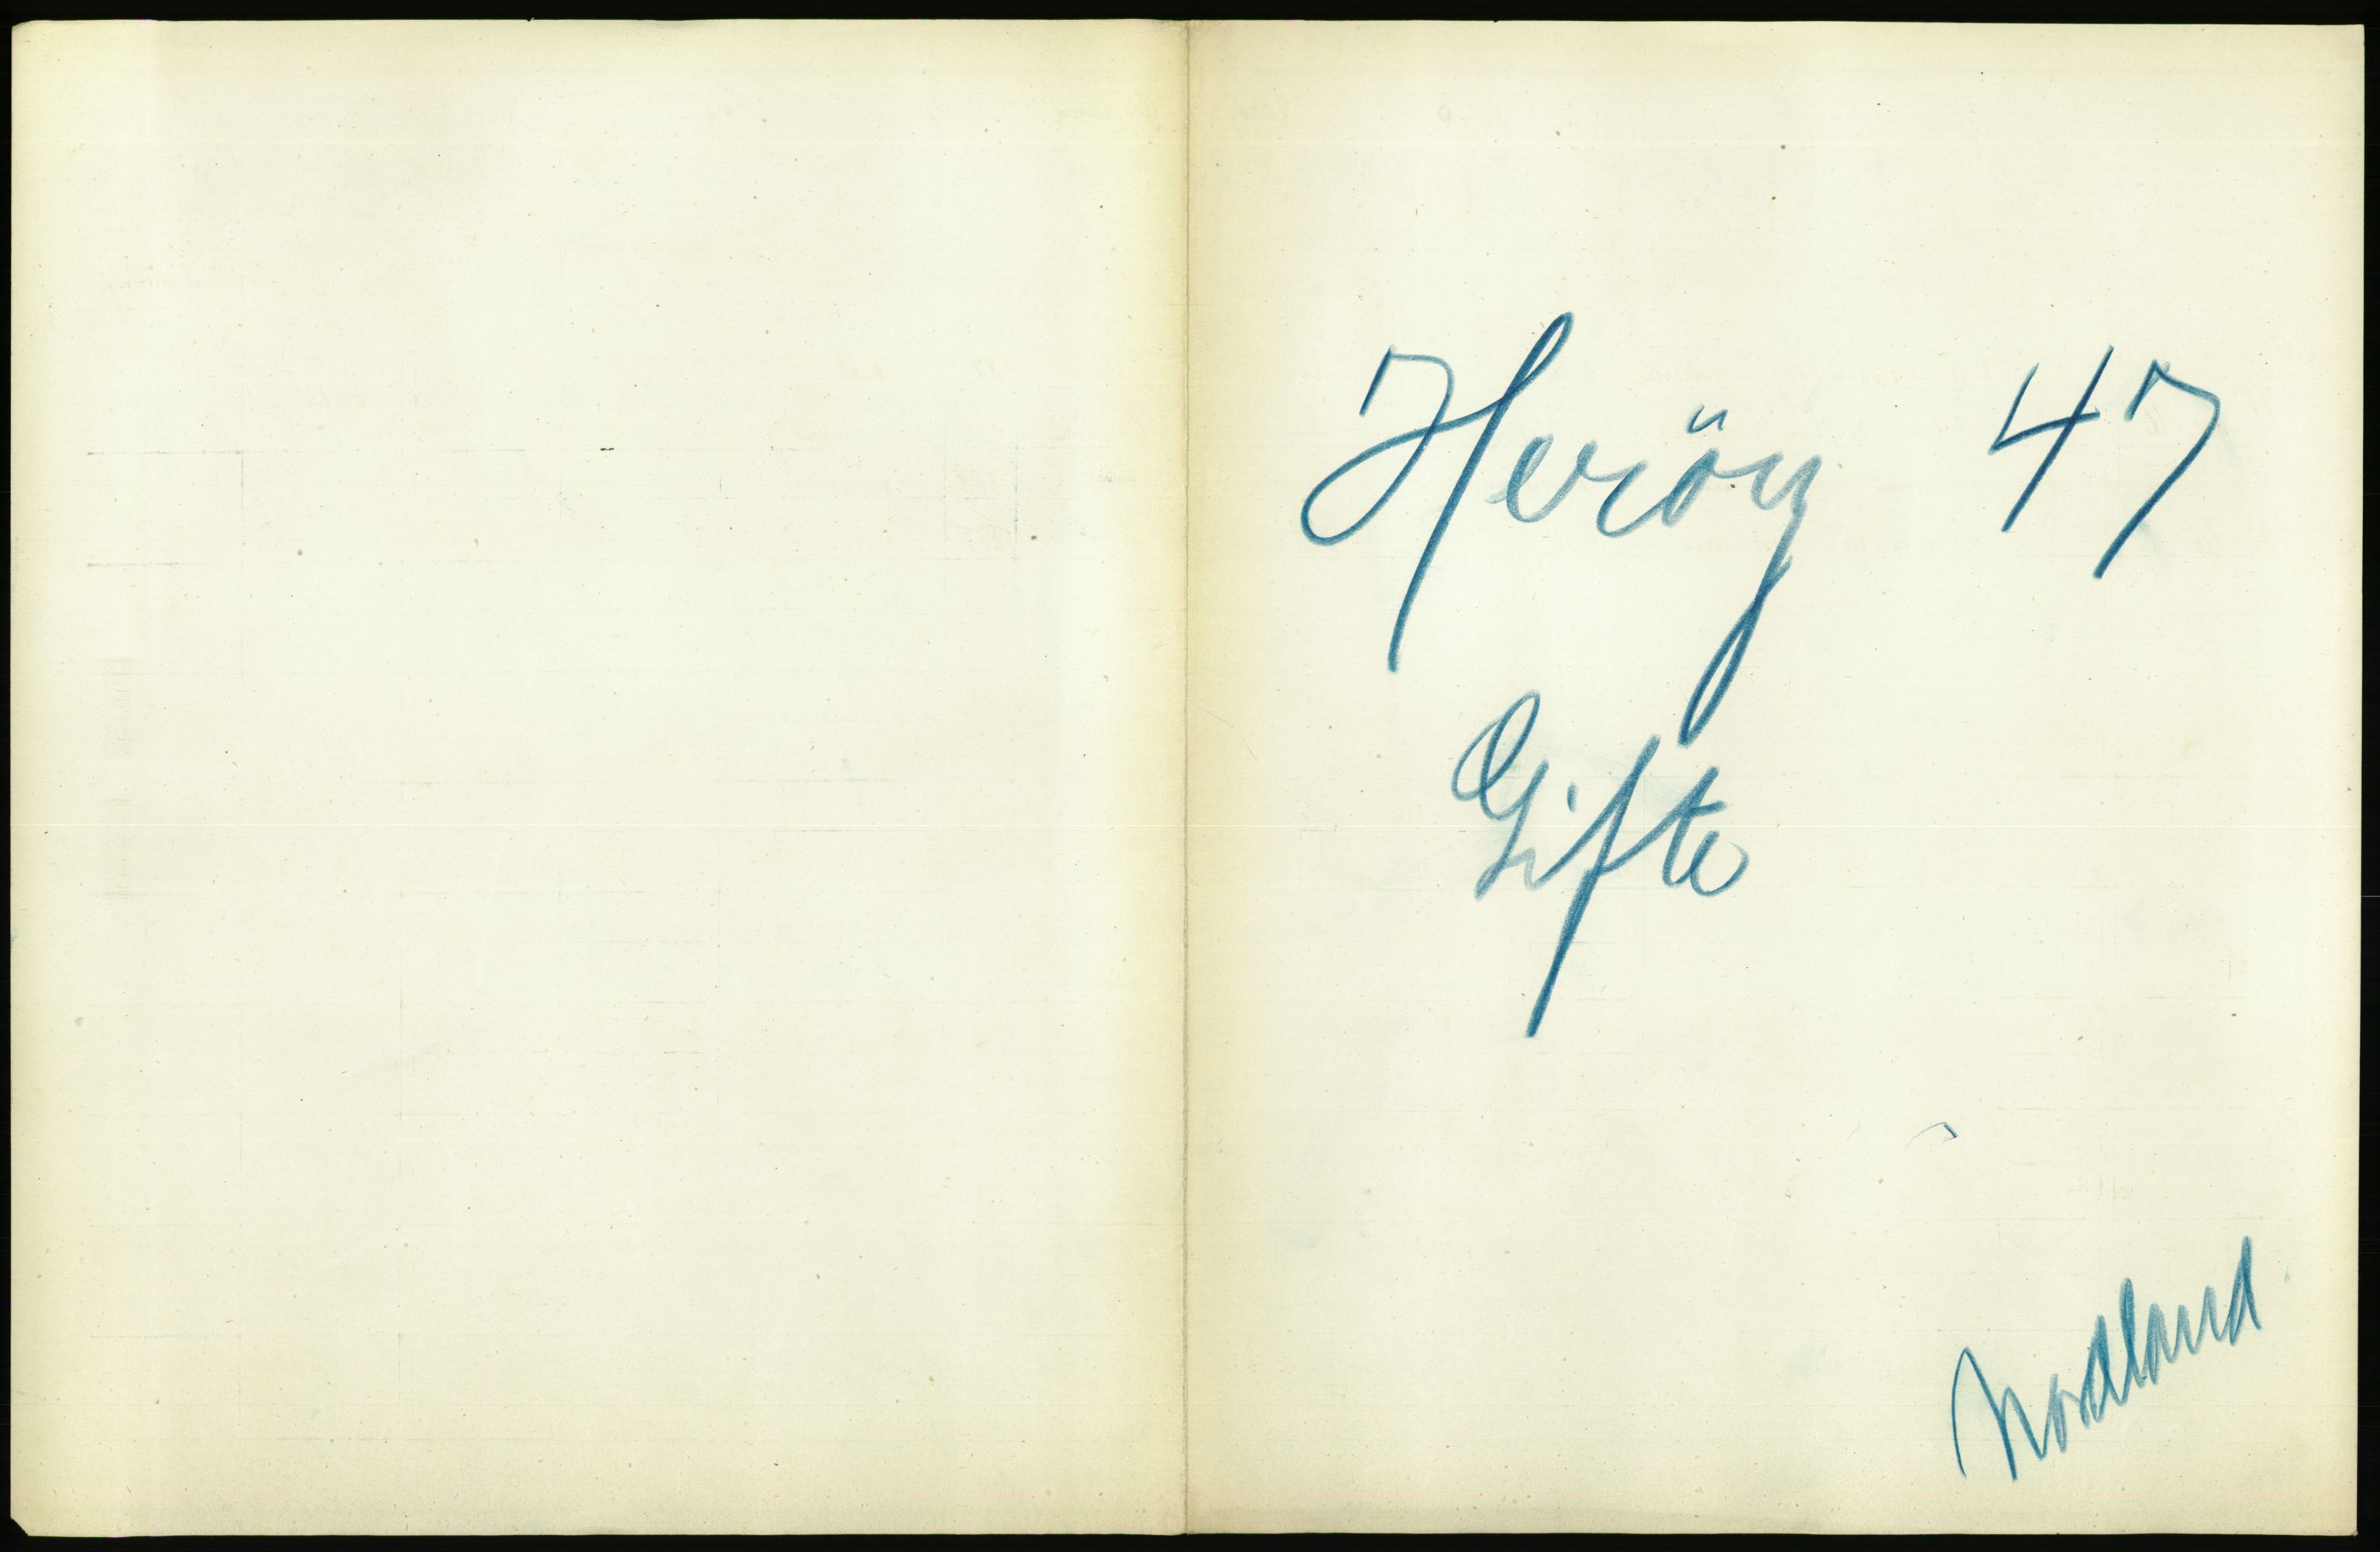 Heröy 47
Gifte
Nordland.